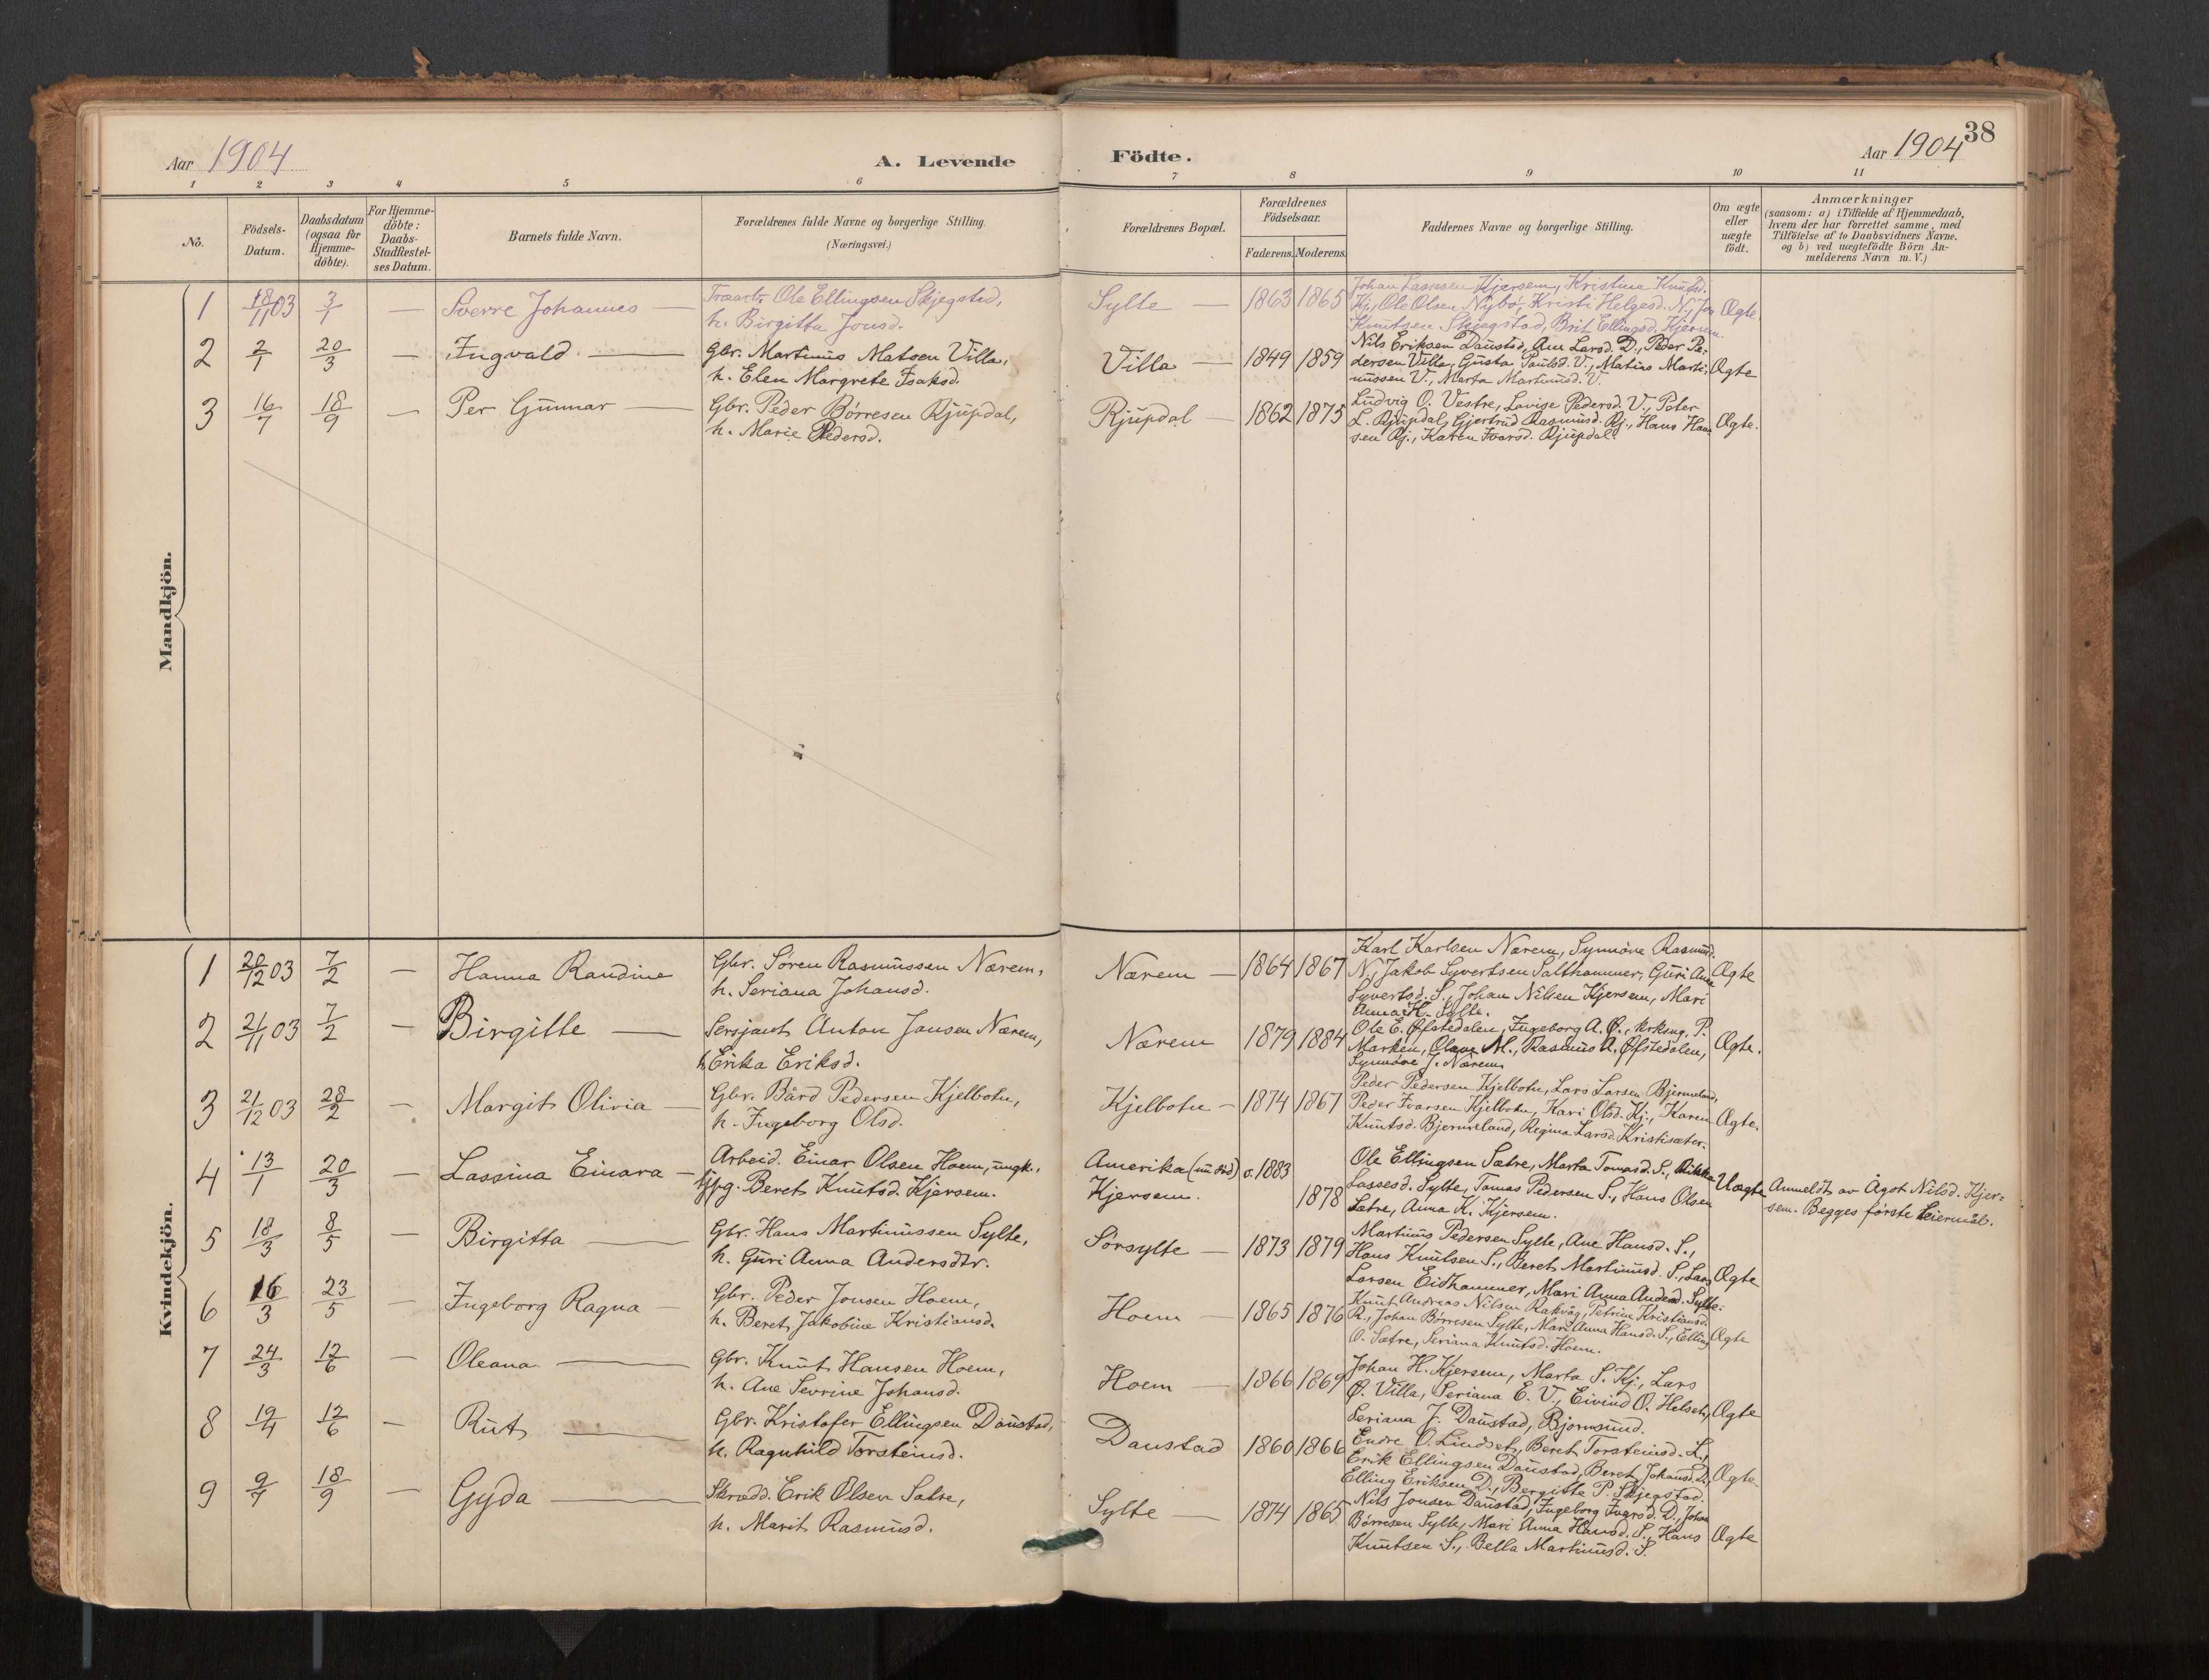 Aar 1904
A. Levende Födte.
Aar 1904
38
1 2 3 4 5 6 7 8 9 10 11
No.
Födsels-Datum.
Daabsdatum (ogsaa för Hjemme-döbte).
For Hjemme-döbte: Daabs-Stadfæstel-ses Datum.
Barnets fulde Navn.
Forældrenes fulde Navne og borgerlige Stilling.
(Næringsvei.)
Forældrenes Bopæl.
Forældrenes Födselsaar.
Faderens. Moderens.
Faddernes Navne og borgerlige Stilling.
Om ægte eller uægte födt.
Anmærkninger
(saasom: a) i Tilfælde af Hjemmedaab,
hvem der har forrettet samme, med
Tilföielse af to Daabsvidners Navne.
og b) ved uægtefödte Börn An-
melderens Navn m. V.)
Mandkjön.
1 18/11 03 3/1 — Sverre Johannes — Træarb. Ole Ellingsen Skjegstad,
h. Birgitta Jonsd.
Sylte — 1863 1865
Johan Lassesen Kjersem, Kristina Knutsd.
Kj., Ole Olsen Nybö, Kristi Helgesd. N., Jon
Knutsen Skjegstad, Brit Ellingsd. Kjersem.
Ægte.
2 2/1 20/3 — Ingvald — Gbr. Martinus Matsen Villa,
h. Elen Margrete Isaksd.
Villa — 1849 1859
Nils Eriksen Daustad, Ane Larsd. D., Peder Pe-
dersen Villa, Gusta Paulsd. V., Matias Marti-
nussen V., Marta Martinusd. V.
Ægte
3 16/7 18/9 — Per Gunnar — Gbr. Peder Børresen Rjupdal,
h. Marie Pedersd.
Rjupdal — 1862 1875
Ludvig O. Vestre, Lovise Pedersd. V., Peter
L. Rjupdal, Gjertrud Rasmusd. Rj., Hans Han
sen Rj., Karen Ivarsd. Rjupdal.
Ægte.
Kvindekjön.
1 20/12 03 7/2 — Hanna Randine Gbr. Søren Rasmussen Nærem,
h. Seriana Johansd.
Nærem — 1864 1867
Karl Karlsen Nærem, Synnøve Rasmusd.
N., Jakob Syvertsen Salthammer, Guri Ane
Syvertsd. S., Johan Nilsen Kjersem, Mari
Anna H. Sylte.
Ægte
2 21/11 03 7/2 — Birgitte — Sersjant Anton Jansen Nærem,
h. Erika Eriksd.
Nærem 1879 1884
Ole E. Øfstedalen, Ingeborg A. Ø., krksng. P.
Marken, Olave M., Rasmus A. Øfstedalen,
Synnøve J. Nærem.
Ægte.
3 21/12 03 28/2 — Margit Olivia — Gbr. Bård Pedersen Kjelbotn,
h. Ingeborg Olsd.
Kjelbotn — 1874 1867
Peder Pedersen Kjelbotn, Lars Larsen Bjermeland,
Peder Ivarsen Kjelbotn, Kari Olsd. Kj., Karen
Knutsd. Bjermeland, Regina Larsd. Kristisæter.
Ægte.
4 13/1 20/3 — Lassina Einara — Arbeid. Einar Olsen Hoem, ungk.,
Pg. Beret Knutsd. Kjersem.
Amerika (nu std) o. 1883
Kjersem. 1878
Ole Ellingsen Sætre, Marta Tomasd. S., Rikka
Lassesd. Sylte, Tomas Pedersen S., Hans Olsen
Sætre, Anna K. Kjersem.
Uægte
Anmeldt av Ågot Nilsd. Kjer-
sem. Begges første Leiermål.
5 18/3 8/5 — Birgitta — Gbr. Hans Martinussen Sylte,
h. Guri Anna Andersdtr.
Sörsylte — 1873 1879
Martinus Pedersen Sylte, Ane Hansd. S.,
Hans Knutsen S., Beret Martinusd. S., Lars
Larsen Eidhammer, Mari Anna Andersd. Sylte.
Ægte
6 16/3 23/5 — Ingeborg Ragna — Gbr. Peder Jonsen Hoem,
h. Beret Jakobine Kristiansd.
Hoem — 1865 1876
Knut Andreas Nilsen Rakvåg, Petrine Kristiansd.
R., Johan Børresen Sylte, Mari Anna Hansd. S., Elling
O. Sætre, Seriana Knutsd. Hoem.
Ægte
7 24/3 12/6 — Oleana. — Gbr. Knut Hansen Hoem,
h. Ane Sevrine Johansd.
Hoem — 1866 1869
Johan H. Kjersem, Marta S. Kj., Lars
Ø. Villa, Seriana E. V., Eivind O. Helset,
Seriana J. Daustad, Bjornsund.
Ægte
8 19/4 12/6 — Rut — Gbr. Kristofer Ellingsen Daustad,
h. Ragnhild Torsteinsd.
Daustad 1860 1866
Endre O. Lindset, Beret Torsteinsd. L.,
Erik Ellingsen Daustad, Beret Johansd. D.,
Elling Eriksen D., Bergitte P. Skjegstad.
Ægte
9 9/7 18/9 — Gyda — Skrædd. Erik Olsen Sætre,
h. Marit Rasmusd.
Sylte — 1874 1865
Nils Jonsen Daustad, Ingeborg Ingrsd. D., Johan
Børresen Sylte, Mari Anna Hansd. S., Hans
Knutsen S., Bella Martinusd. S.
Ægte